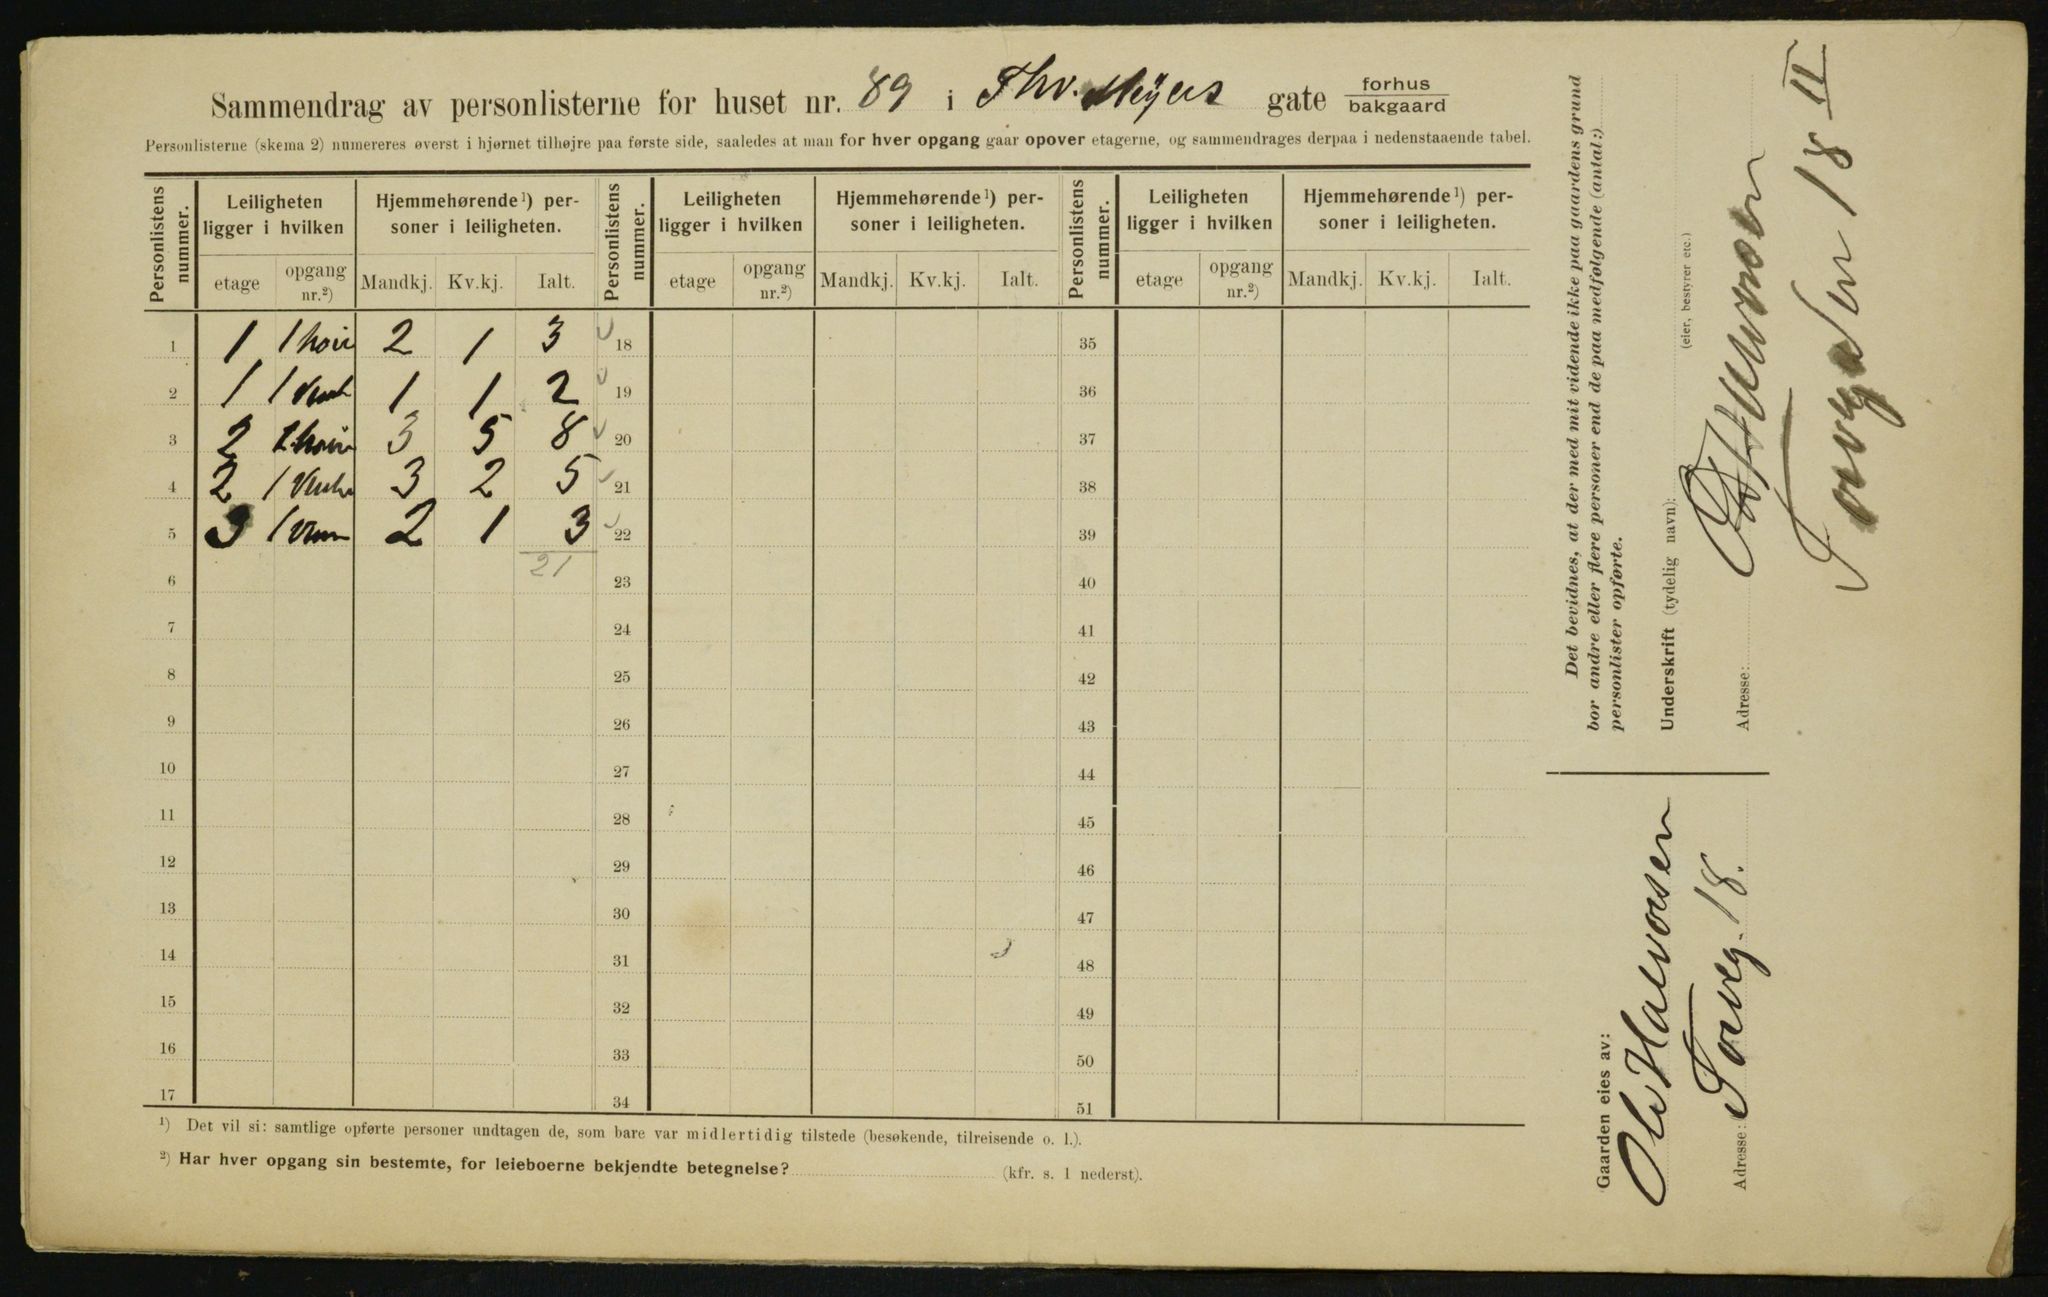 Sammendrag av personlisterne for huset nr. 89 i Thv. Meyers gate forhus bakgaard
Personlisterne (skema 2) numereres øverst i hjørnet tilhøjre paa første side, saaledes at man for hver opgang gaar opover etagerne, og sammendrages derpaa i nedenstaaende tabel.
Personlistens nummer. Leiligheten ligger i hvilken Hjemmehørende ¹) personer i leiligheten. Personlistens nummer. Leiligheten ligger i hvilken Hjemmehørende ¹) personer i leiligheten. Personlistens nummer. Leiligheten ligger i hvilken Hjemmehørende ¹) personer i leiligheten.
etage opgang nr.²) Mandkj. Kv.kj. Ialt. etage opgang nr.²) Mandkj. Kv.kj. Ialt. etage opgang nr.²) Mandkj. Kv.kj. Ialt.
1 1 1 2 1 3 18 35
2 1 1 1 1 2 19 36
3 2 3 5 8 20 37
4 2 1 3 2 5 21 38
5 3 1 2 1 3 22 39
6 21 23 40
7 24 41
8 25 42
9 26 43
10 27 44
11 28 45
12 29 46
13 30 47
14 31 48
15 32 49
16 33 50
17 34 51
¹) Det vil si: samtlige opførte personer undtagen de, som bare var midlertidig tilstede (besøkende, tilreisende o. l.).
²) Har hver opgang sin bestemte, for leieboerne bekjendte betegnelse? (kfr. s. 1 nederst).
Det bevidnes, at der med mit vidende ikke paa gaardens grund
bor andre eller flere personer end de paa medfølgende (antal:)
personlister opførte.
Underskrift (tydelig navn):
(eier, bestyrer etc.)
Adresse: 18 II
Gaarden eies av:
Ole Halvorsen
Adresse: Torvg. 18.